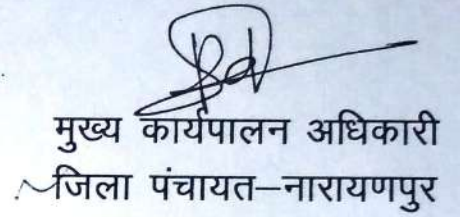 मुख्य कार्यपालन अधिकारी
जिला पंचायत–नारायणपुर